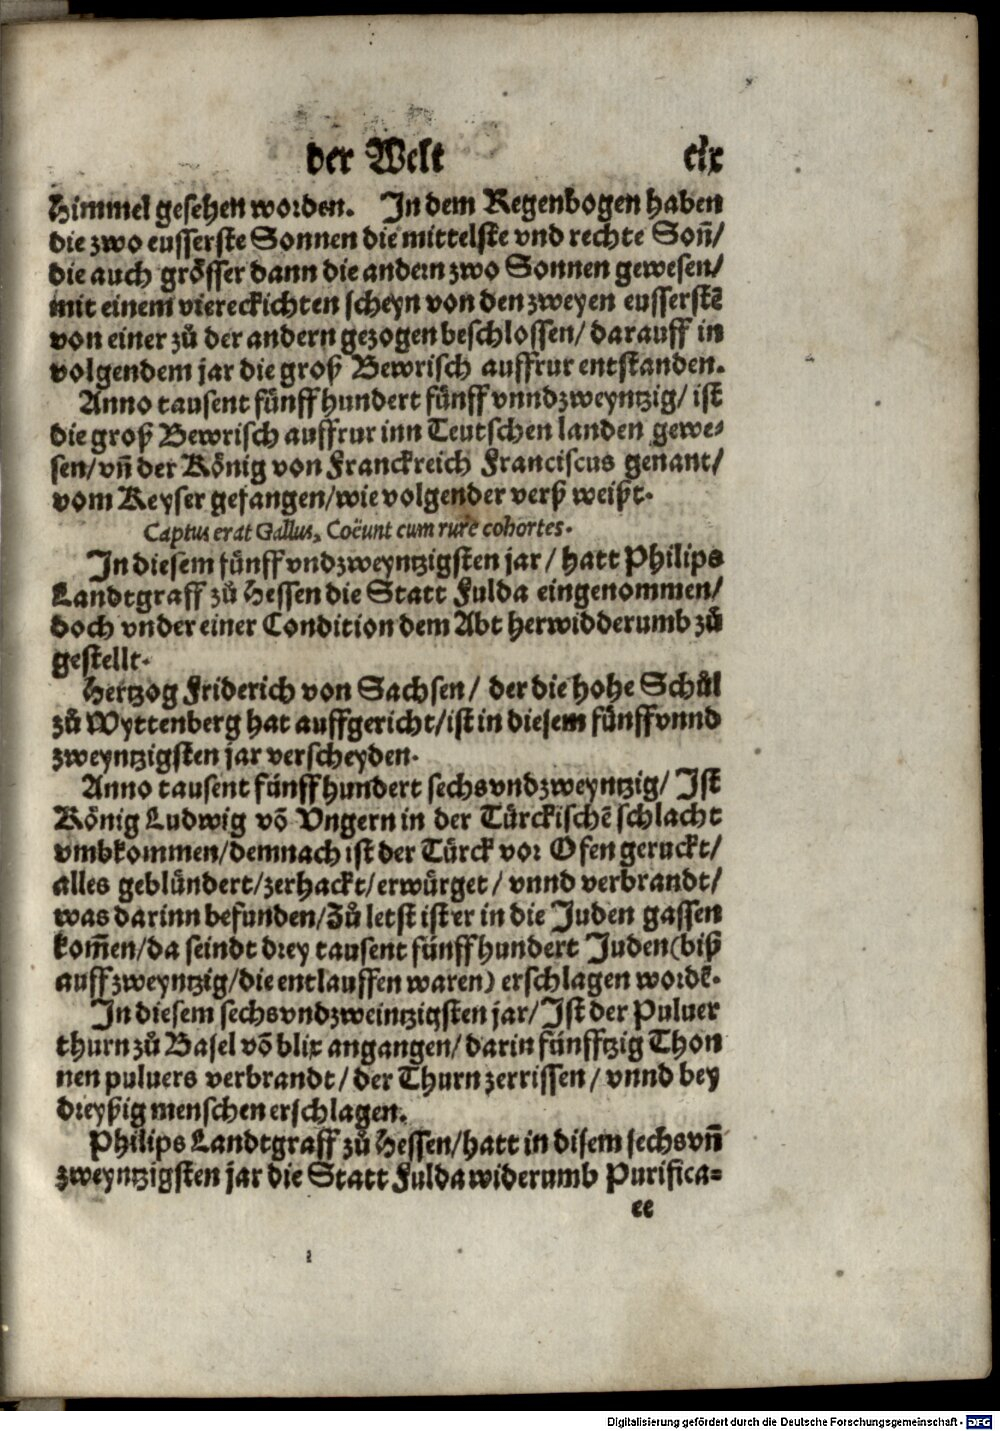 der Welt clx
Himmel gesehen worden. In dem Regenbogen haben
die zwo eusserste Sonnen die mittelste vnd rechte Soñ/
die auch grösser dann die andern zwo Sonnen gewesen/
mit einem viereckichten scheyn von den zweyen eusserstē
von einer zů der andern gezogen beschlossen/ darauff in
volgendem jar die groß Bewrisch auffrur entstanden.
Anno tausent fünffhundert fünff vnndzweyntzig/ ist
die groß Bewrisch auffrur inn Teutschen landen gewe-
sen/ vñ der König von Franckreich Franciscus genant/
vom Keyser gefangen/ wie volgender verß weißt.
Captus erat Gallus, Coëunt cum rure cohortes.
In diesem fünff vndzweyntzigsten jar/ hatt Philips
Landtgraff zů Hessen die Statt Fulda eingenommen/
doch vnder einer Condition dem Abt herwidderumb zů
gestellt.
Hertzog Friderich von Sachsen/ der die hohe Schůl
zů Wyttenberg hat auffgericht/ ist in diesem fünff vnnd
zweyntzigsten jar verscheyden.
Anno tausent fünffhundert sechsvndzweyntzig/ Ist
König Ludwig võ Vngern in der Türckischē schlacht
vmbkommen/ demnach ist der Türck vor Ofen geruckt/
alles geblündert/ zerhackt/ erwürget/ vnnd verbrandt/
was darinn befunden/ Zů letst ist er in die Juden gassen
kom̃en/ da seindt drey tausent fünffhundert Juden (biß
auff zweyntzig/ die entlauffen waren) erschlagen wordē.
In diesem sechsvndzweintzigsten jar/ Ist der Puluer
thurn zů Basel võ blix angangen/ darin fünfftzig Thon
nen puluers verbrandt/ der Thurn zerrissen/ vnnd bey
dreyßig menschen erschlagen.
Philips Landtgraff zů Hessen/ hatt in disem sechsvñ
zweyntzigsten jar die Statt Fulda widerumb Purifica-
ee
Digitalisierung gefördert durch die Deutsche Forschungsgemeinschaft - DFG